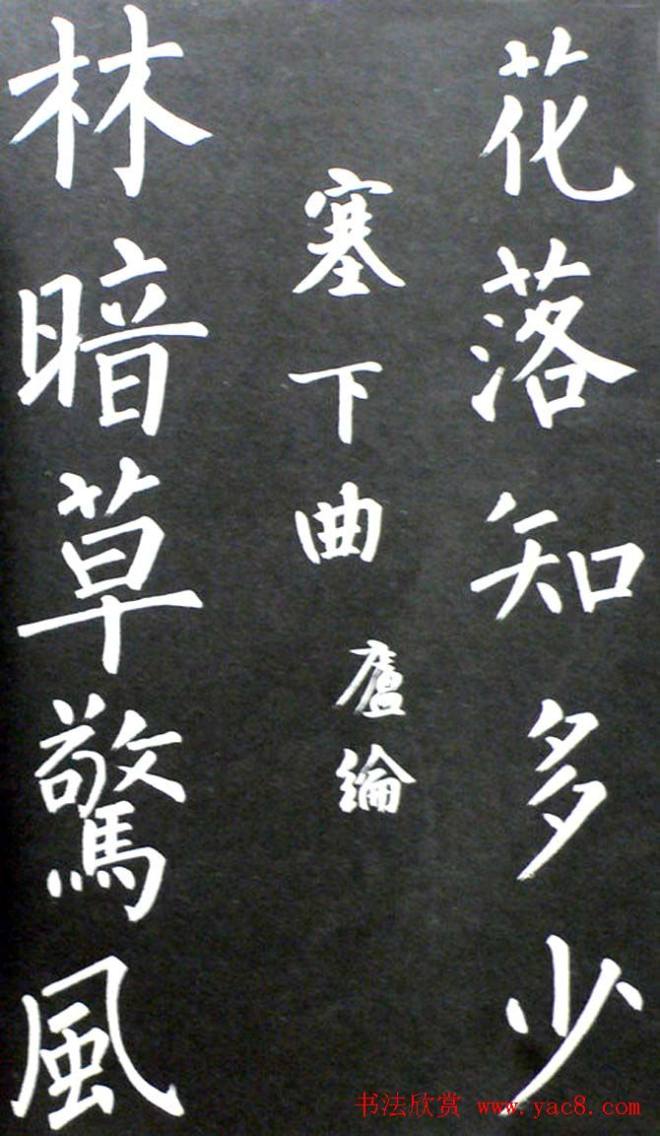 花落知多少
塞下曲
廬綸
林暗草驚風
书法欣赏 www.yac8.com